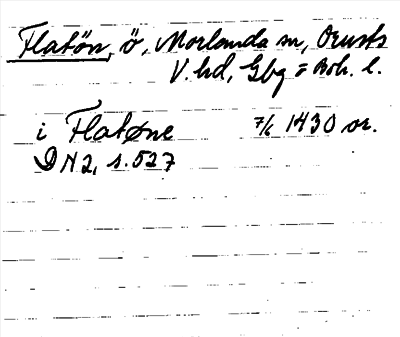 Flatön, ö, Morlanda sn, Orusts
V. hd, Gbg o Boh. l.
i Flatøne 7/6 1430 or.
DN 2, s. 527